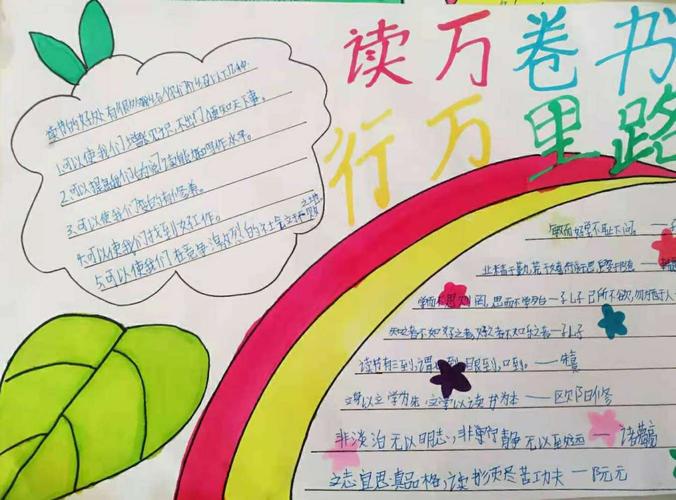 读万卷书
行万里路
读书的好处有很多
1.可以使我们增长见识,不出门便知天下事。
2.可以提高我们的阅读能力和写作水平。
3.可以使我们变的有修养。
4.可以使我们找到好工作。
5.可以使我们在竞争激烈的社会立于
之地
敏而好学不耻下问。——孔
业精于勤,荒于嬉
学而不思则罔,思而不学则殆—孔子 己所不欲,勿施于人
知之者不如好之者,好之者不如乐之者—孔子
读书有三到,谓 到 眼到,口到。——朱熹
立身以立学为先,立学以读书为本——欧阳修
非淡泊无以明志,非宁静无以致远——诸葛
立志宜思真品格,读书须尽苦功夫——阮元